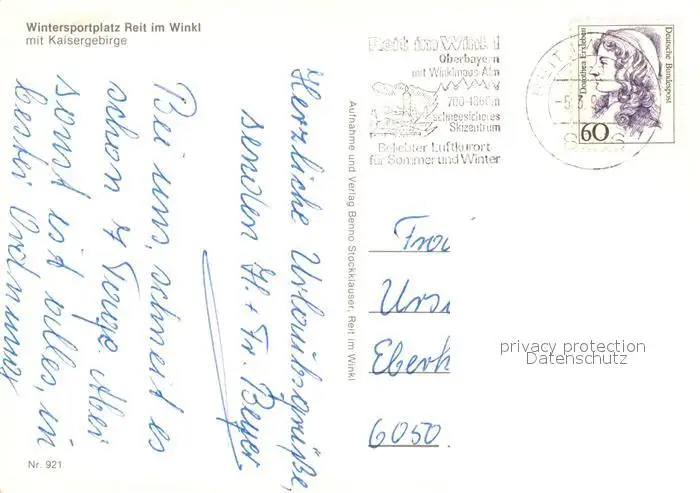 Wintersportplatz Reit im Winkl
mit Kaisergebirge
Reit im Winkl
Oberbayern
mit Winklmoos-Alm
700-1860m
schneesicheres
Skizentrum
Beliebter Luftkurort
für Sommer und Winter
Deutsche Bundespost
60
Herzliche Urlaubsgrüße,
senden H. + Fr. Beyer
Bei uns, schneit es
schon 7 Tage. Aber
sonst ist alles, in
bester Ordnung
Aufnahme und Verlag Benno Stockklauser, Reit im Winkl
Urs
Eberh
6050
privacy protection
Datenschutz
Nr. 921